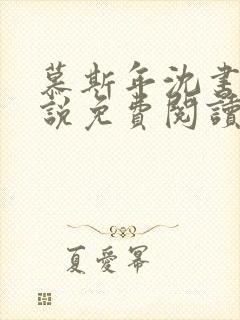 慕斯年沈書
說免費閱讀
夏愛冪